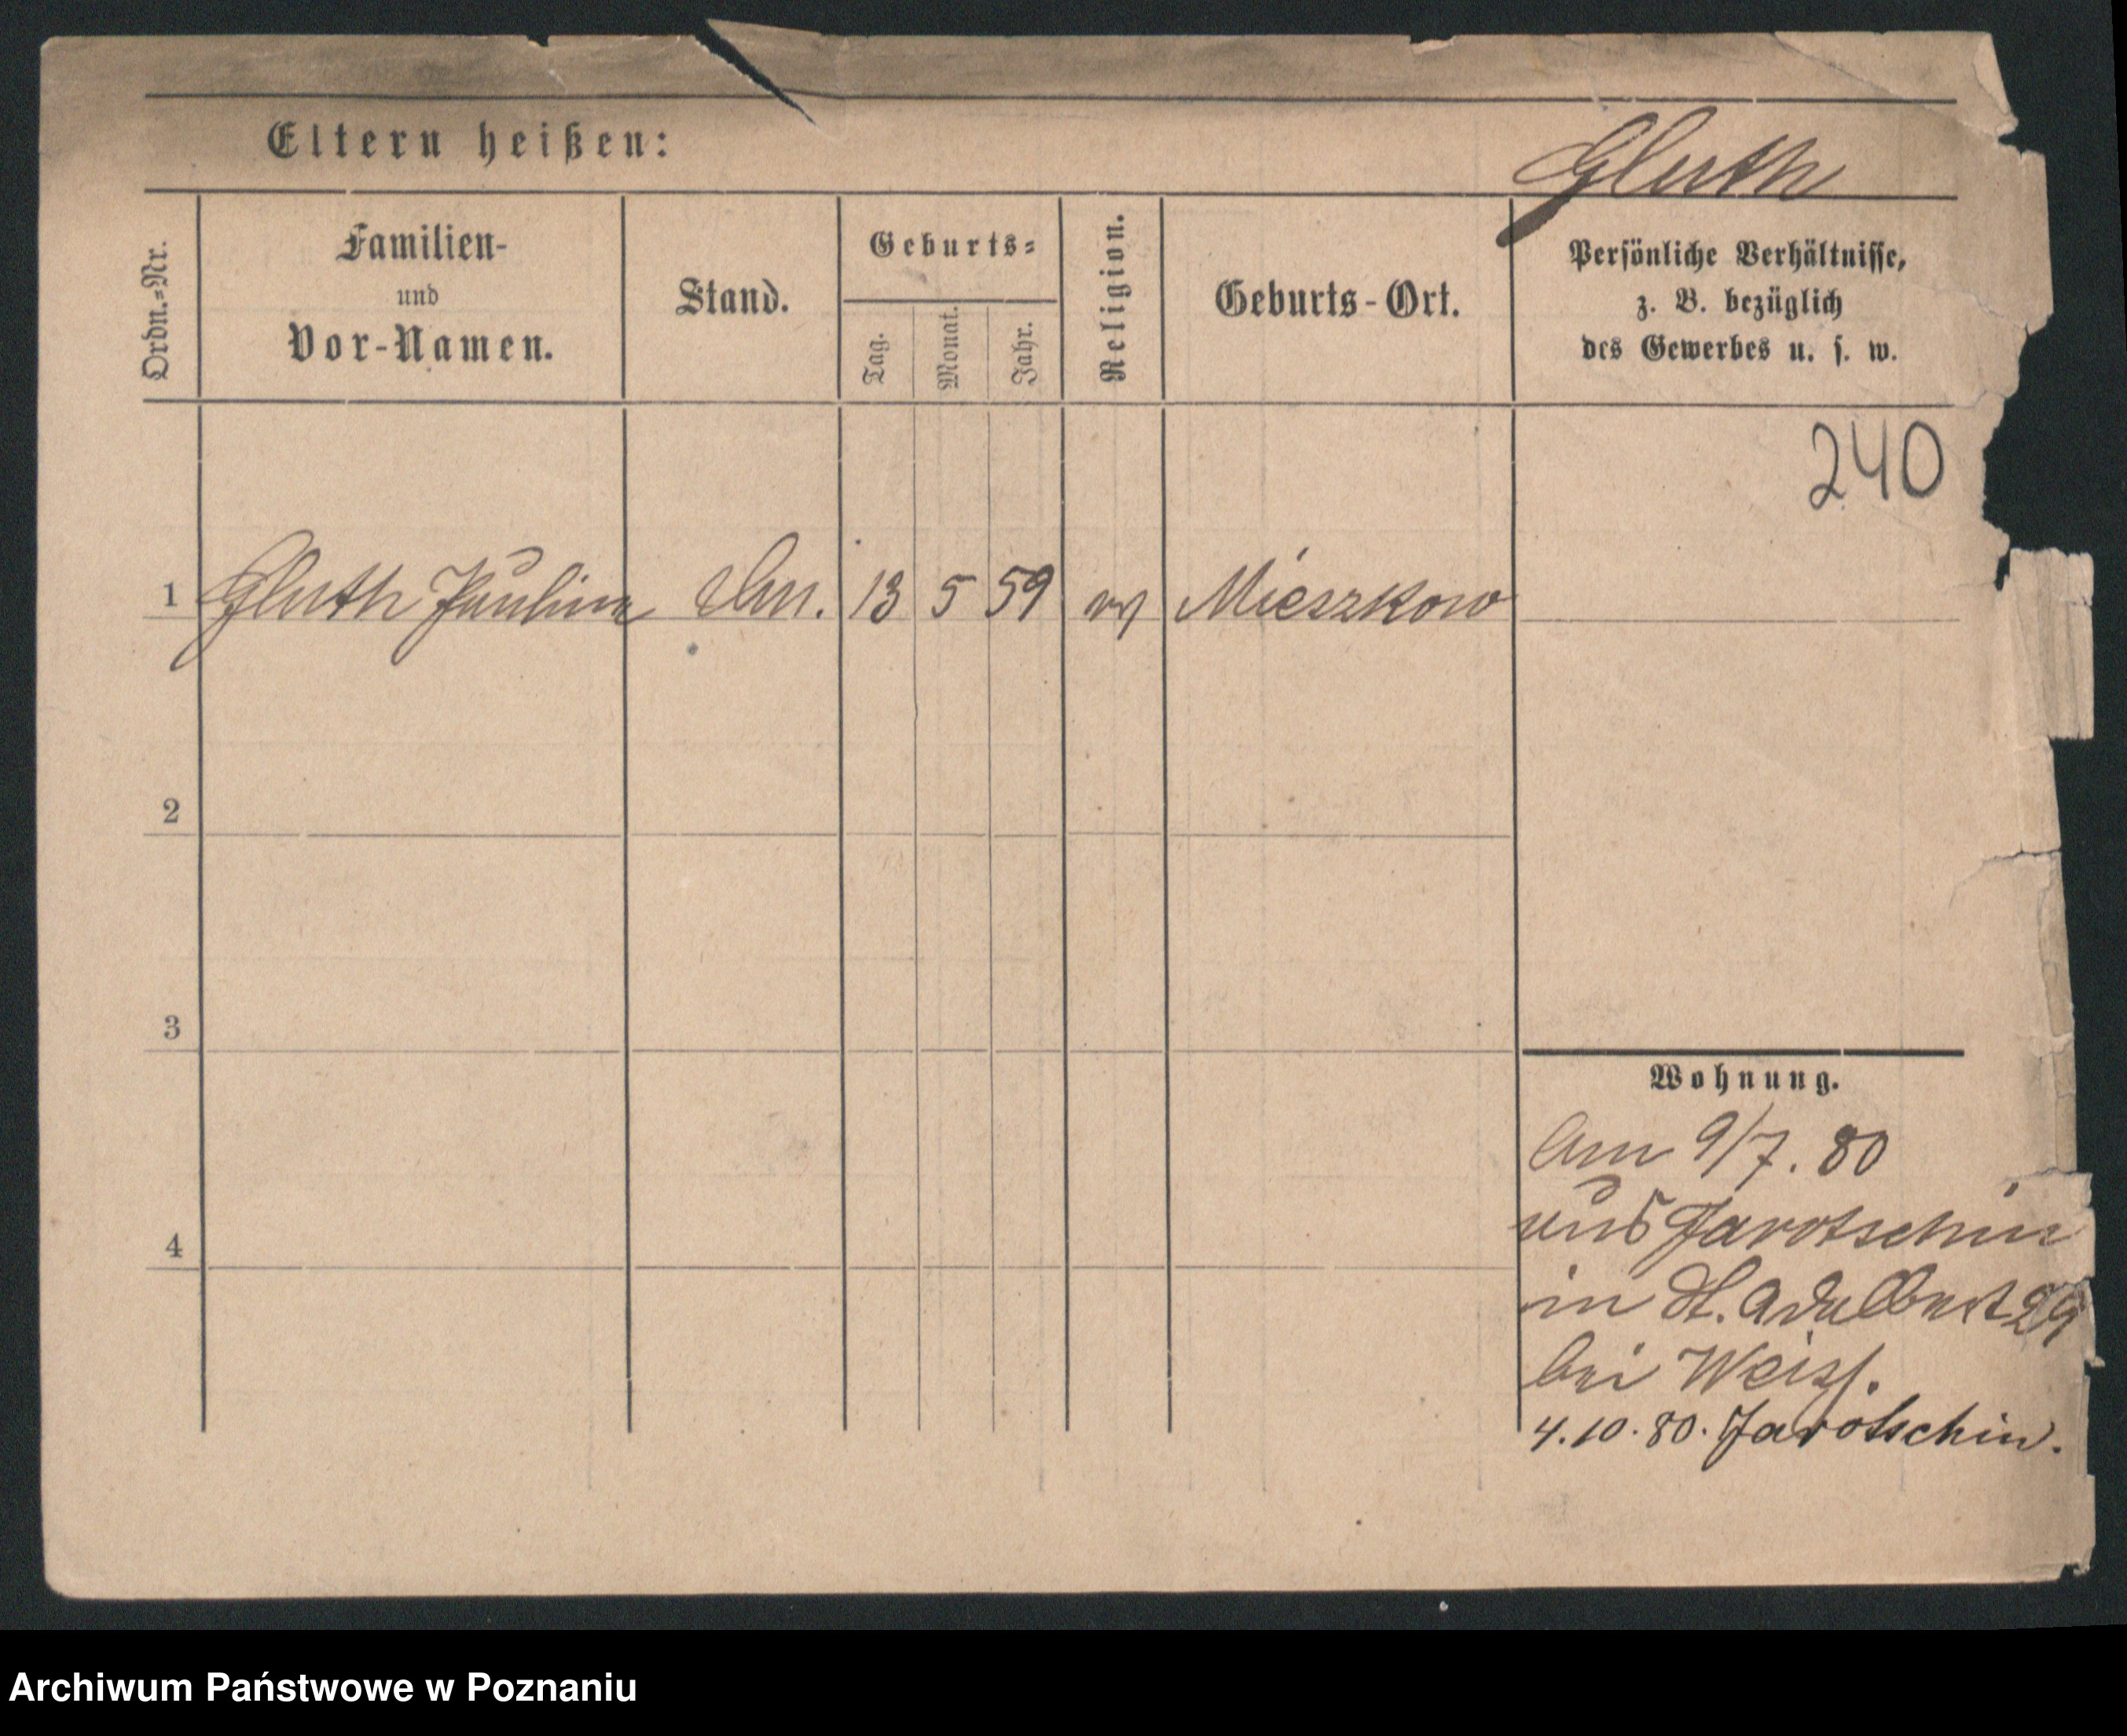 Eltern heißen:
Gluth
Ordn.-Nr.
Familien-
und
Vor-Namen.
Stand.
Geburts-
Tag.
Monat.
Jahr.
Religion.
Geburts-Ort.
Persönliche Verhältnisse,
z. B. bezüglich
des Gewerbes u. s. w.
240
1 Gluth Pauline 13 5 59 Mieszkow
2
3
4
Wohnung.
Am 9/7. 80
aus Jarotschin
in St. Adalbert 29
bei Weiss.
4.10.80. Jarotschin.
Archiwum Państwowe w Poznaniu